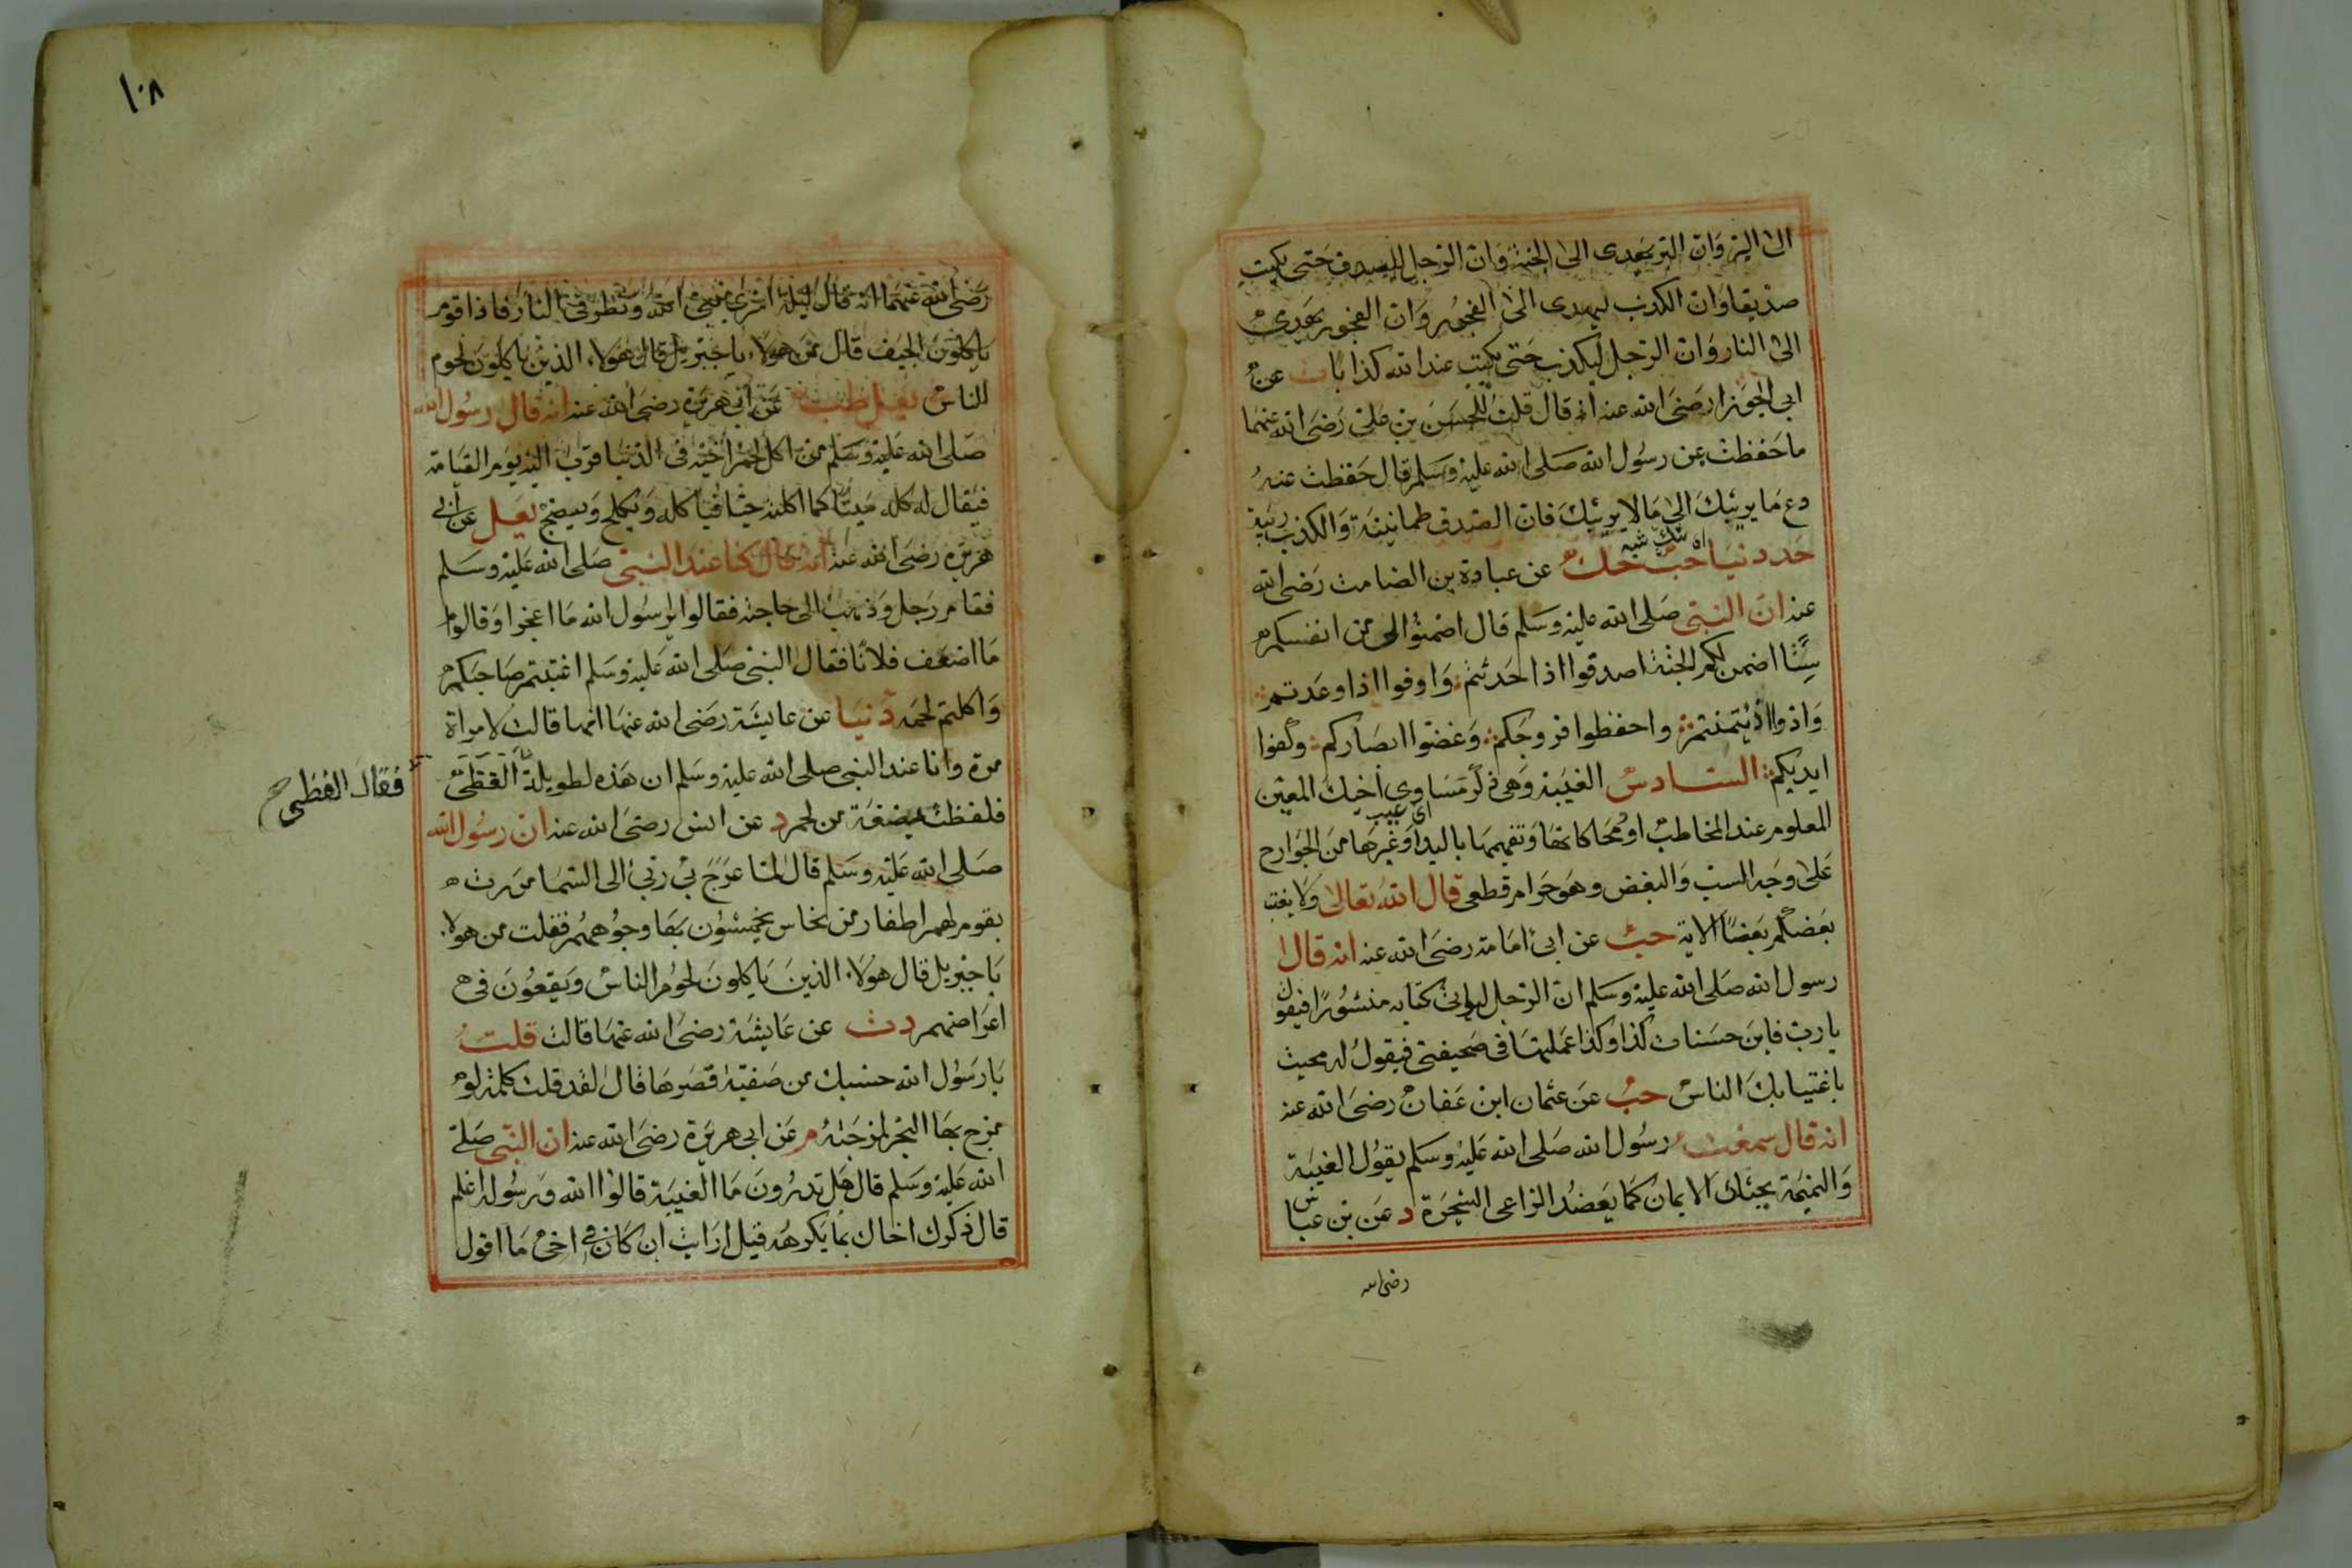 الى البر وان البر يهدى الى الجنة وان الرجل ليصدق حتى يكتب
صديقا وان الكذب ليهدى الى الفجور وان الفجور يهدى
الى النار وان الرجل ليكذب حتى يكتب عند الله كذابا ت عن
ابى الجوزا رضى الله عنه انه قال قلت للحسن بن على رضى الله عنهما
ما حفظت من رسول الله صلى الله عليه وسلم قال حفظت عنه
دع ما يريبك الى ما لا يريبك فان الصدق طمانينة والكذب ريبة
اى شك شبه
حد دنيا حب حك عن عبادة بن الصامت رضى الله
عنه ان النبى صلى الله عليه وسلم قال اضمنوا لى من انفسكم
ستا اضمن لكم الجنة اصدقوا اذا حدثتم وا وفوا اذا وعدتم
وادوا اذا ئتمنتم واحفظوا فروجكم وغضوا ابصاركم وكفوا
ايديكم السادس الغيبة وهى ذكر مساوى اخيك المعين
اى عيب
المعلوم عند المخاطب او محاكاتها وتفهيمها باليد او غيرها من الجوارح
على وجه السب والبغض وهو حرام قطعى قال الله تعالى ولا يغتب
بعضكم بعضا الاية حب عن ابى امامة رضى الله عنه انه قال
رسول الله صلى الله عليه وسلم ان الرجل ليؤتى كتابه منشورا فيقول
يا رب فاين حسنات كذا وكذا عملتها فى صحيفتى فيقول له محيت
باغتيابك الناس حب عن عثمان ابن عفان رضى الله عنه
انه قال سمعت رسول الله صلى الله عليه وسلم يقول الغيبة
والنميمة يحتان الايمان كما يعضد الراعى الشجرة د عن بن عباس
رضى الله
١٠٨
رضى الله عنهما انه قال ليلة اسرى بنبى الله ونظر فى النار فاذا قوم
ياكلون الجيف قال من هولاء يا جبريل قال هولاء الذين ياكلون لحوم
الناس يعلى طب عن ابى هريرة رضى الله عنه انه قال رسول الله
صلى الله عليه وسلم من اكل لحم اخيه فى الدنيا قرب اليه يوم القيامة
فيقال له كله ميتا كما اكلته حيا فياكله ويكلح ويضج يعلى عن ابى
هريرة رضى الله عنه انه قال كنا عند النبى صلى الله عليه وسلم
فقام رجل وذهب الى حاجته فقالوا يا رسول الله ما اعجز او قالوا
ما اضعف فلانا فقال النبى صلى الله عليه وسلم اغتبتم صاحبكم
واكلتم لحمه دنيا عن عايشة رضى الله عنها انها قالت لامراة
مرة وانا عند النبى صلى الله عليه وسلم ان هذه لطويلة الفظى
فقال الفظى صح
فلفظت مضغة من لحم د عن انس رضى الله عنه ان رسول الله
صلى الله عليه وسلم قال لما عرج بى ربى الى السما مررت
بقوم لهم اظفار من نحاس يخمشون بها وجوههم فقلت من هولاء
يا جبريل قال هولاء الذين ياكلون لحوم الناس ويقعون فى
اعراضهم د ت عن عايشة رضى الله عنها قالت قلت
يا رسول الله حسبك من صفية قصرها قال لقد قلت كلمة لو
مزج بها البحر لمزجته م عن ابى هريرة رضى الله عنه ان النبى صلى
الله عليه وسلم قال هل تدرون ما الغيبة قالوا الله ورسوله اعلم
قال ذكرك اخاك بما يكرهه قيل ارايت ان كان فى اخى ما اقول